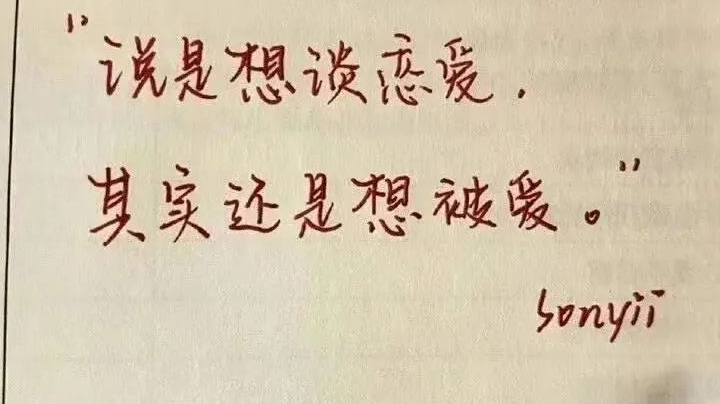 "说是想谈恋爱,
其实还是想被爱。"
sonyii